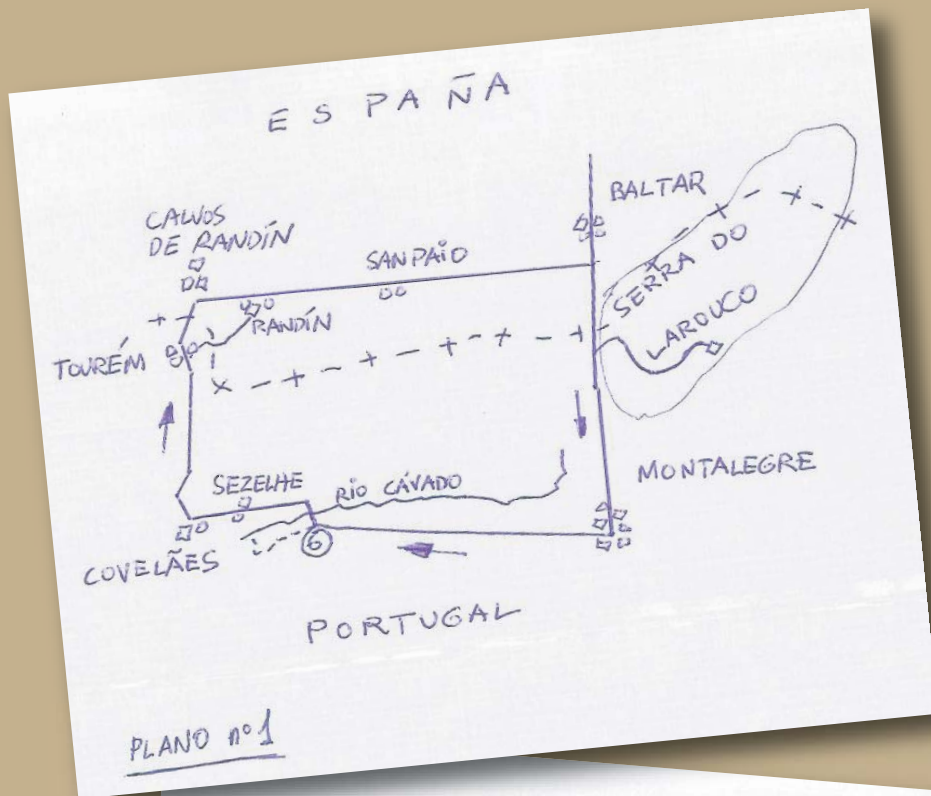 ESPAÑA
BALTAR
CALVOS
DE RANDÍN
SAN PAIO
SERRA DO
LAROUCO
RANDÍN
TOURÉM
MONTALEGRE
SEZELHE
RIO CÁVADO
6
COVELÃES
PORTUGAL
PLANO nº 1